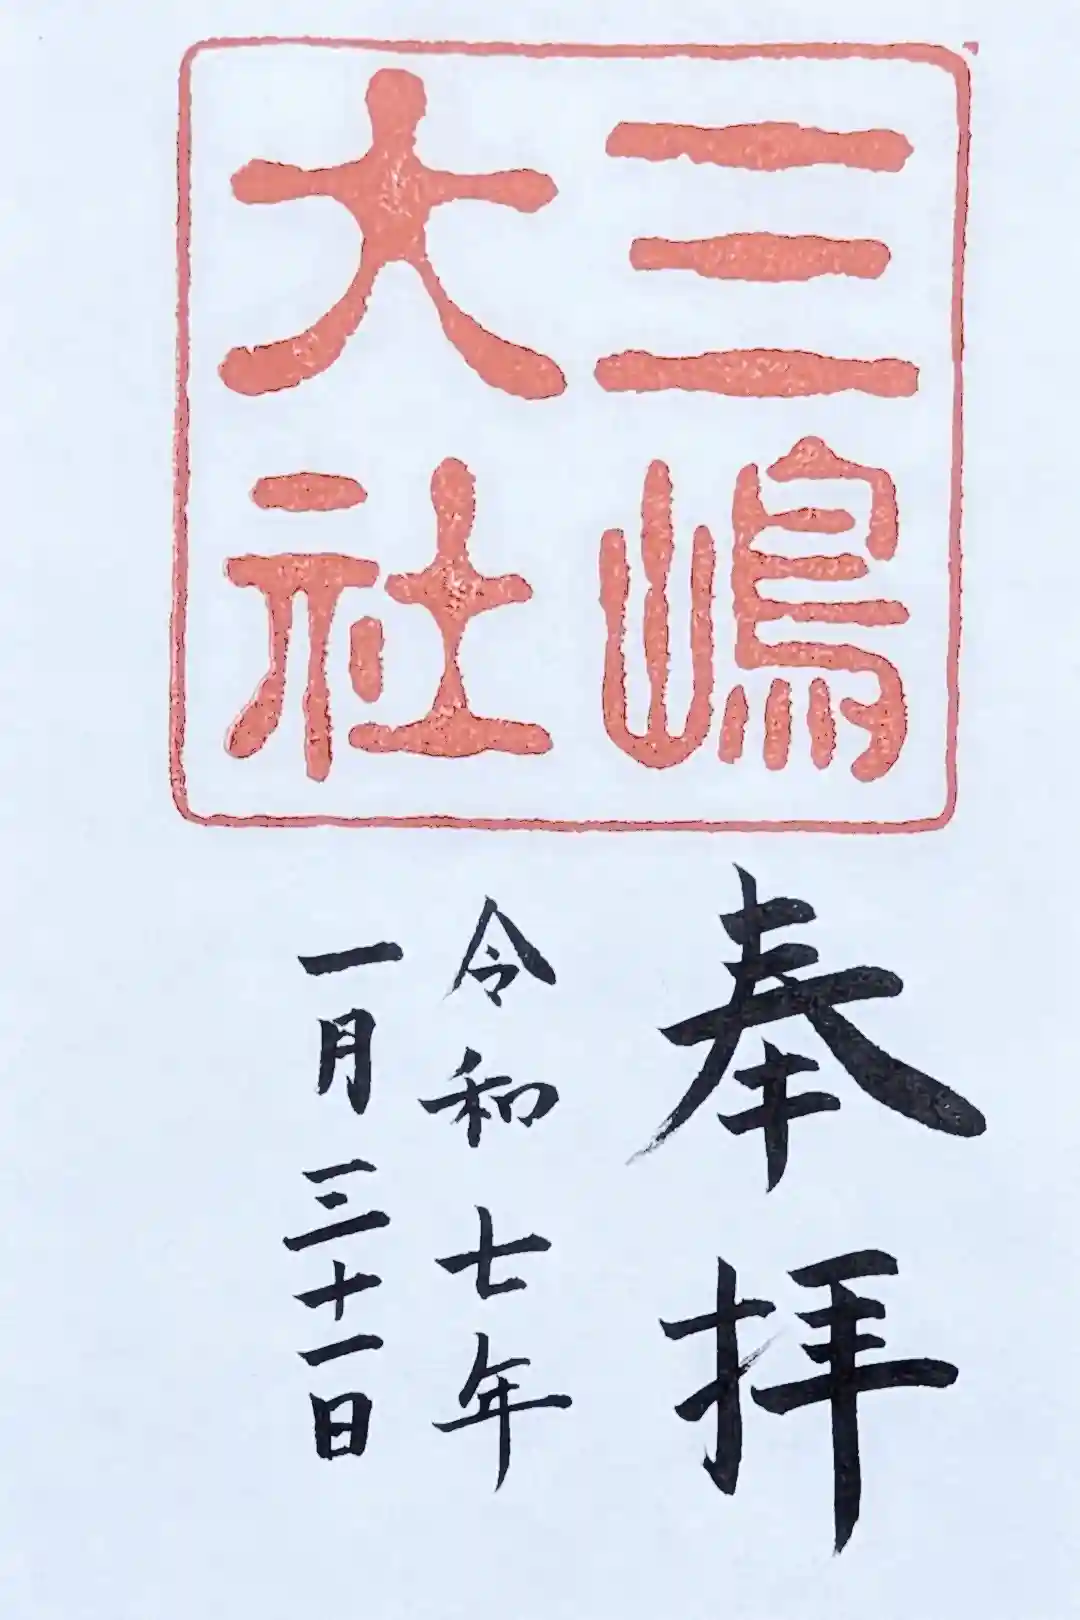 三嶋
大社
奉拝
令和七年
一月三十一日